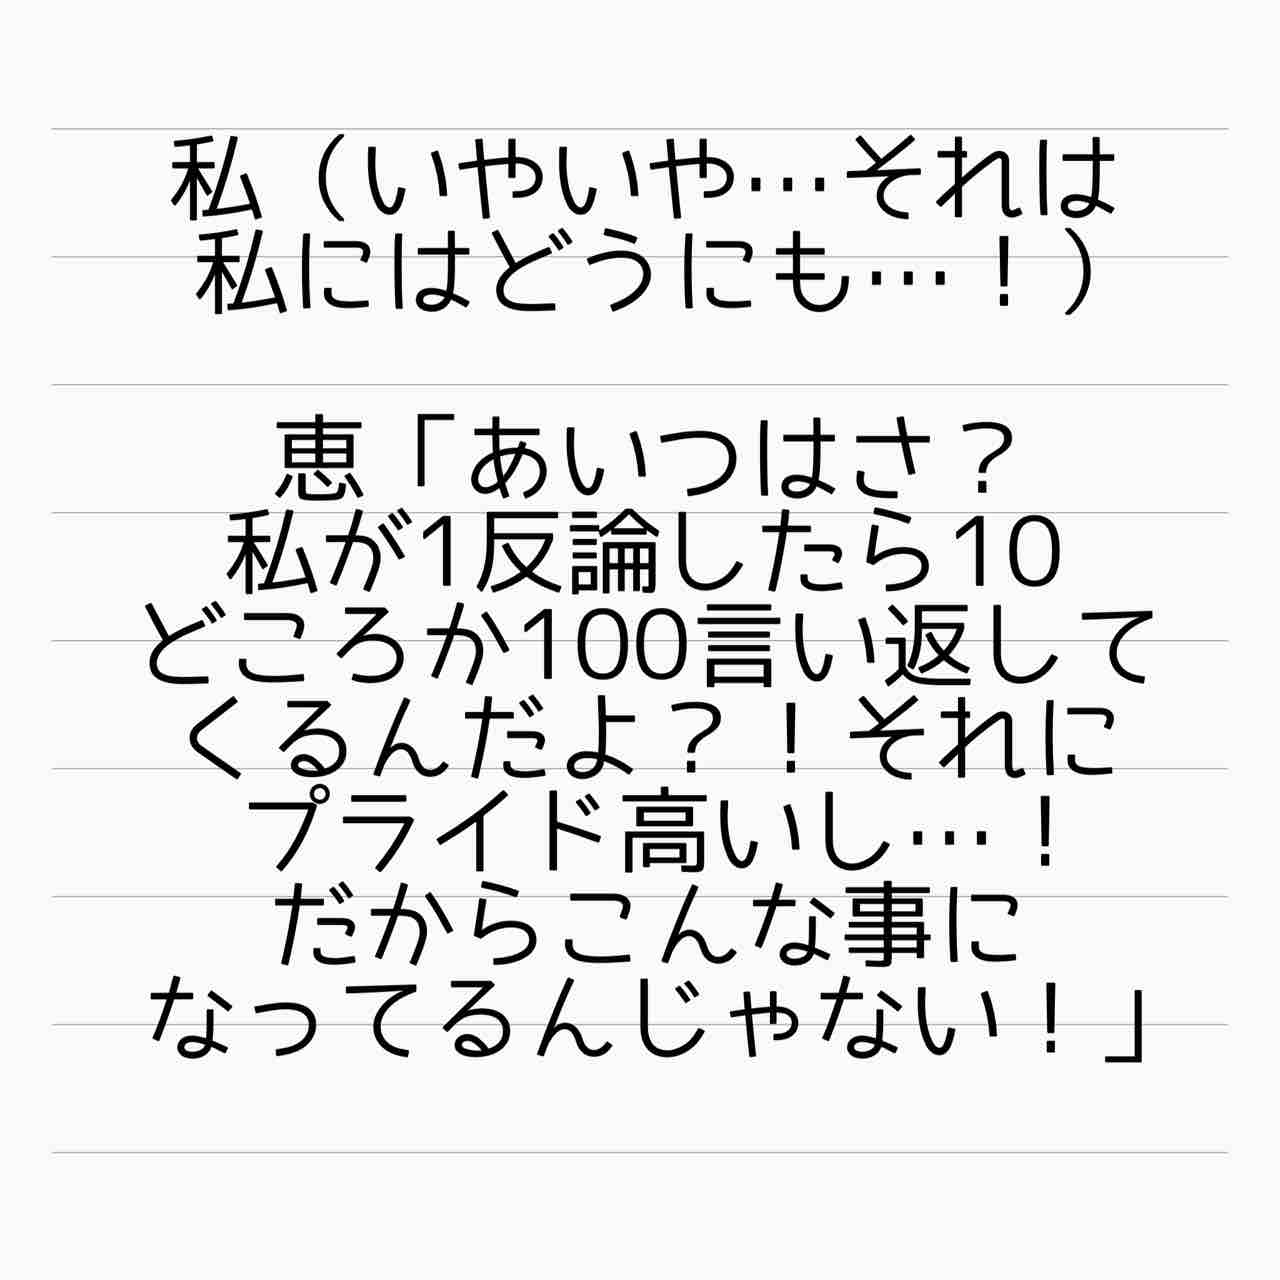 私（いやいや…それは
私にはどうにも…！）
恵「あいつはさ？
私が1反論したら10
どころか100言い返して
くるんだよ？！それに
プライド高いし…！
だからこんな事に
なってるんじゃない！」